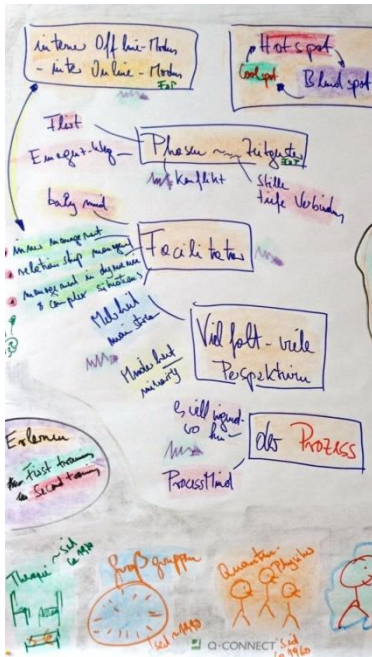 interne Offline-Modus
- inter Online-Modus
Hotspot
Coolspot
Blindspot
Flirt
Emergenz-Weg
Phasen ~ Zeitgeister
Konflikt
Stille
tiefe Verbindung
baby mind
Facilitator
inner management
relationship management
management in dynamic
& complex situations
Mehrheit
main stream
Minderheit
minority
Vielfalt - viele
Perspektiven
Es will irgend-
wo hin
der Prozess
ProcessMind
Erlernen
First training
Second training
Therapie
~ seit
Großgruppen
seit ~ 1990
Quanten-Physik
Q-CONNECT
seit